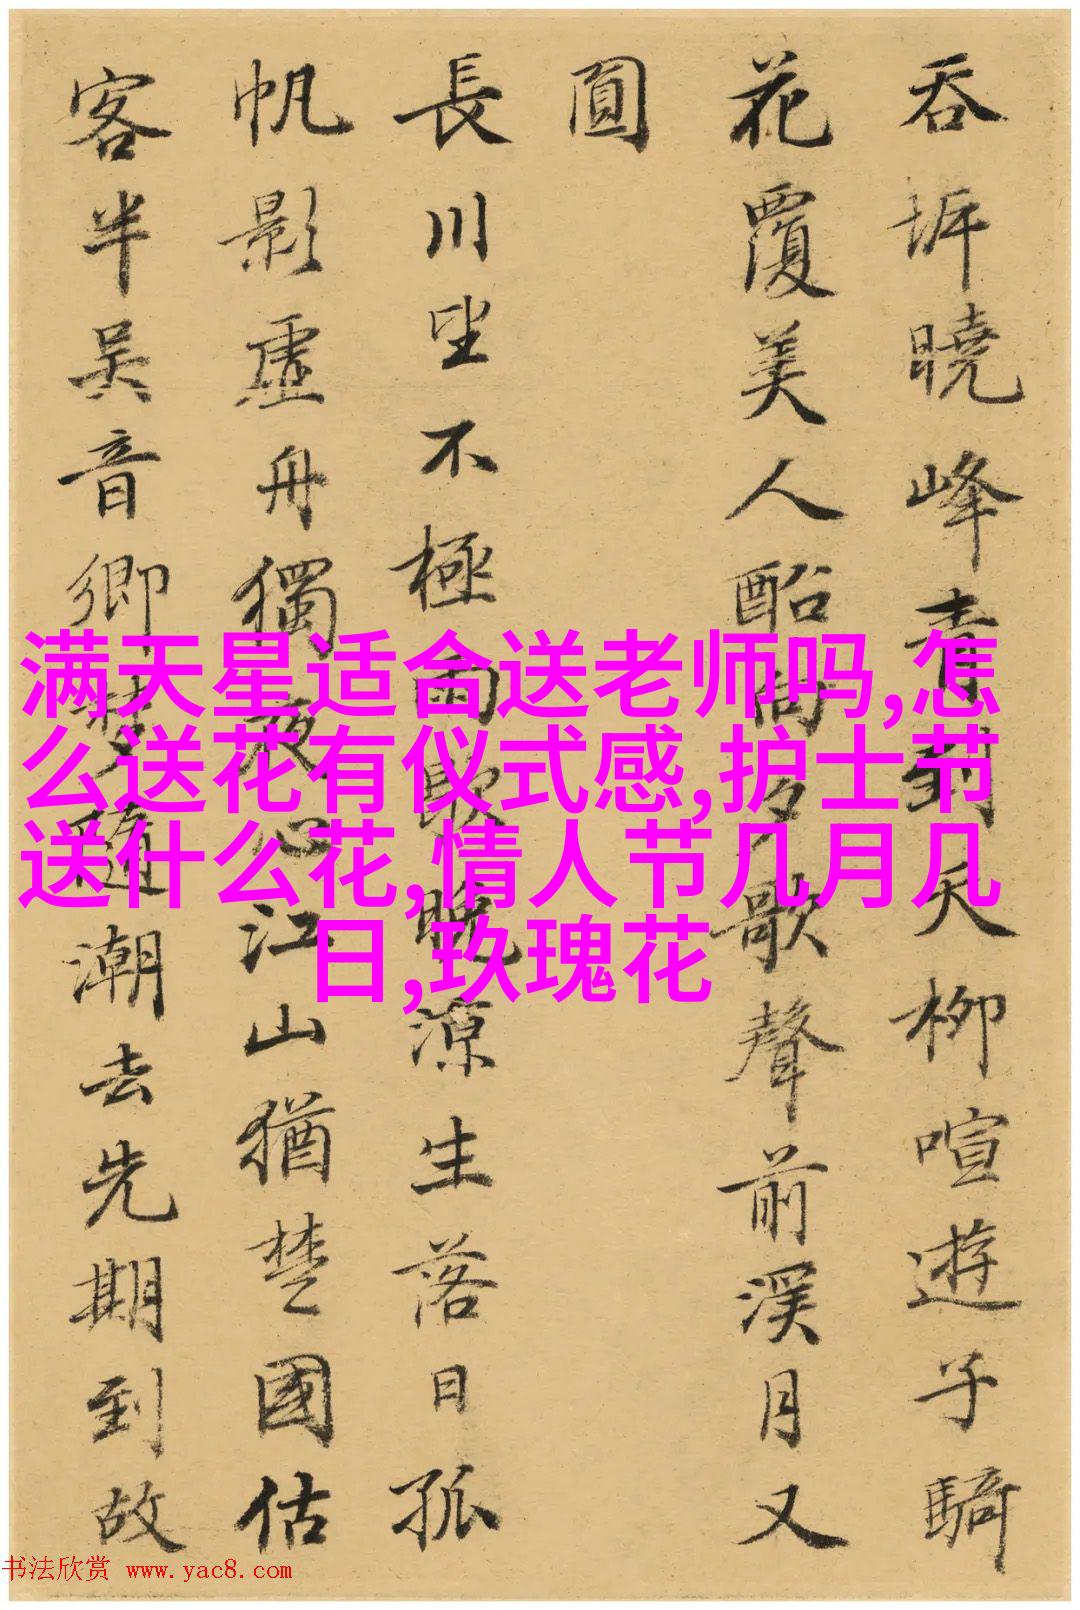 吞坼曉峰青到天柳喧遊子騎
花覆美人歌聲前溪月又
圓
長川坐不極雨歇晚涼生落日孤
帆影虛舟獨夜心江山猶楚國估
客半吳音鄉夢隨潮去先期到故
满天星适合送老师吗,怎
么送花有仪式感,护士节
送什么花,情人节几月几
日,玫瑰花
书法欣赏 www.yac8.com